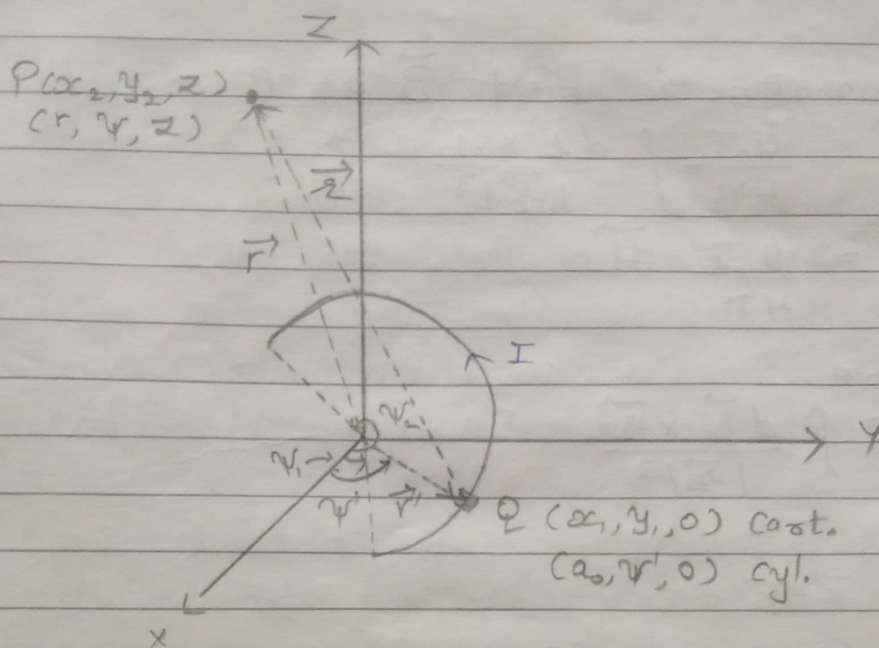 Z
P(x₂, y₂, z)
(r, ψ, z)
𝓇⃗
r⃗
I
ψ₂
Y
ψ₁
ψ'
r⃗'
Q (x₁, y₁, 0) Cart.
(a₀, ψ', 0) Cyl.
X